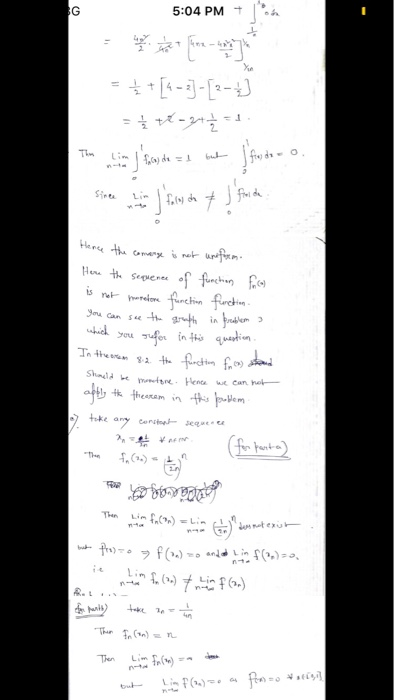 3G 5:04 PM + ∫ 0 dx
= 4n²/2 · 1/4n² + [4nx - 4n²x²/2]
= 1/2 + [4-2] - [2-1/2]
= 1/2 + 2 - 2 + 1/2 = 1.
Then Lim n→∞ ∫₀¹ fn(x) dx = 1 but ∫₀¹ f(x) dx = 0.
Since Lim n→∞ ∫₀¹ fn(x) dx ≠ ∫₀¹ f(x) dx.
Hence the converge is not uniform.
Here the sequence of function fn(x)
is not monotone function function.
you can see the graph in problem 2
which you refer in this question.
In theorem 8.2. the function fn(x)
should be monotone. Hence we can not
apply the theorem in this problem.
take any constant sequence
xn = 1/2n ∀ n∈ℕ. (for part-a)
Then fn(xn) = (1/2n)ⁿ
Then Lim n→∞ fn(xn) = Lim n→∞ (1/2n)ⁿ does not exist
but f(x) = 0 ⇒ f(xn) = 0 and Lim n→∞ f(xn) = 0.
i.e Lim n→∞ fn(xn) ≠ Lim n→∞ f(xn)
take xn = 1/4n
Then fn(xn) = n
Then Lim n→∞ fn(xn) = ∞
but Lim n→∞ f(xn) = 0 as f(x) = 0 ∀ x∈[0,1]